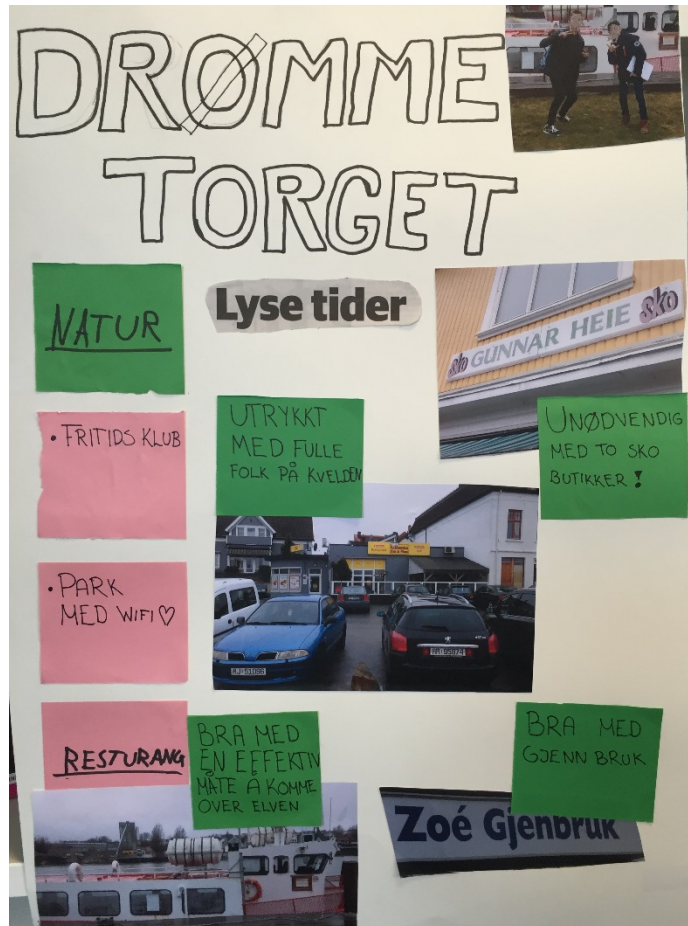 DRØMME
TORGET
NATUR
Lyse tider
sko GUNNAR HEIE sko
• FRITIDS KLUB
UTRYKKT
MED FULLE
FOLK PÅ KVELDEN
UNØDVENDIG
MED TO SKO
BUTIKKER!
• PARK
MED WIFI♡
RESTURANG
BRA MED
EN EFFEKTIV
MÅTE Å KOMME
OVER ELVEN
BRA MED
GJENN BRUK
Zoé Gjenbruk